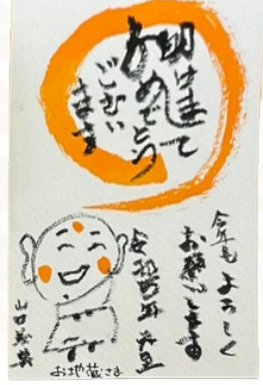 明けまして
おめでとう
ござい
ます
今年も よろしく
お願いします
お地蔵さま